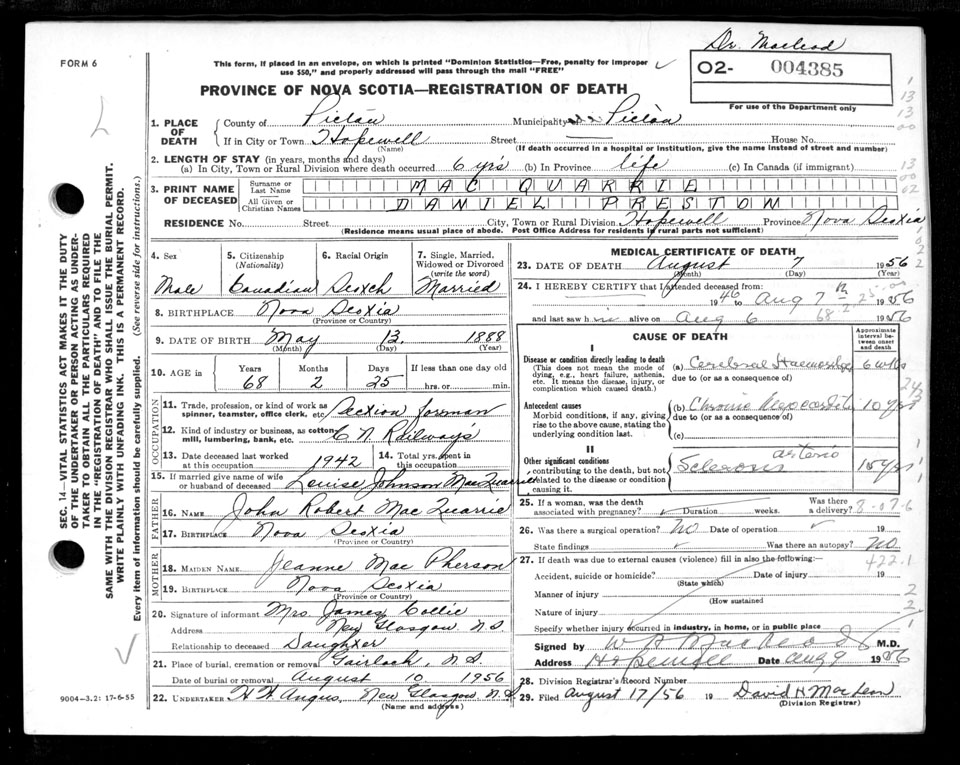 Dr. Macleod
FORM 6
This form, if placed in an envelope, on which is printed "Dominion Statistics—Free, penalty for improper use $50," and properly addressed will pass through the mail "FREE"
02- 004385
For use of the Department only
PROVINCE OF NOVA SCOTIA—REGISTRATION OF DEATH
1. PLACE OF DEATH County of Pictou Municipality Pictou
If in City or Town Hopewell Street House No.
(Name) (If death occurred in a hospital or institution, give the name instead of street and number)
2. LENGTH OF STAY (in years, months and days)
(a) In City, Town or Rural Division where death occurred 6 yrs (b) In Province life (c) In Canada (if immigrant)
3. PRINT NAME OF DECEASED Surname or Last Name MAC QUARRIE
All Given or Christian Names DANIEL PRESTON
RESIDENCE No. Street City, Town or Rural Division Hopewell Province Nova Scotia
(Residence means usual place of abode. Post Office Address for residents of rural parts not sufficient)
4. Sex Male
5. Citizenship (Nationality) Canadian
6. Racial Origin Scotch
7. Single, Married, Widowed or Divorced (write the word) Married
8. BIRTHPLACE Nova Scotia
(Province or Country)
9. DATE OF BIRTH May 13, 1888
(Month) (Day) (Year)
10. AGE in Years 68 Months 2 Days 25 If less than one day hrs. or min.
OCCUPATION
11. Trade, profession, or kind of work as spinner, teamster, office clerk, etc. Section foreman
12. Kind of industry or business, as cotton mill, lumbering, bank, etc. C N Railways
13. Date deceased last worked at this occupation 1942 14. Total yrs. spent in this occupation
15. If married give name of wife or husband of deceased Louise Johnson MacQuarrie
FATHER
16. NAME John Robert Mac Quarrie
17. BIRTHPLACE Nova Scotia
(Province or Country)
MOTHER
18. MAIDEN NAME Jeanne Mac Pherson
19. BIRTHPLACE Nova Scotia
(Province or Country)
20. Signature of informant Mrs. James Collie
Address New Glasgow N.S
Relationship to deceased Daughter
21. Place of burial, cremation or removal Gairloch, N.S.
Date of burial or removal August 10 1956
22. UNDERTAKER H Angus, New Glasgow, N.S
(Name and address)
MEDICAL CERTIFICATE OF DEATH
23. DATE OF DEATH August 7 1956
(Month) (Day) (Year)
24. I HEREBY CERTIFY that I attended deceased from:
1946 to Aug 7th 1956
and last saw him alive on Aug 6 1956
CAUSE OF DEATH
Approximate interval between onset and death
I
Disease or condition directly leading to death (This does not mean the mode of dying, e.g., heart failure, asthenia, etc. It means the disease, injury, or complication which caused death.)
(a) Cerebral Haemorrhage 6 wks
due to (or as a consequence of)
Antecedent causes
Morbid conditions, if any, giving rise to the above cause, stating the underlying condition last.
(b) Chronic Myocarditis 10 yrs
due to (or as a consequence of)
(c)
II
Other significant conditions contributing to the death, but not related to the disease or condition causing it.
Arterio Sclerosis 15 yrs
25. If a woman, was the death associated with pregnancy? Duration weeks. Was there a delivery?
26. Was there a surgical operation? No Date of operation 19
State findings Was there an autopsy? No
27. If death was due to external causes (violence) fill in also the following:—
Accident, suicide or homicide? Date of injury 19
(State which)
Manner of injury
(How sustained)
Nature of injury
Specify whether injury occurred in industry, in home, or in public place
Signed by Macleod M.D.
Address Hopewell Date Aug 9 1956
28. Division Registrar's Record Number
29. Filed August 17/56 19 David H MacLean
(Division Registrar)
SEC. 14—VITAL STATISTICS ACT MAKES IT THE DUTY OF THE UNDERTAKER OR PERSON ACTING AS UNDERTAKER TO OBTAIN ALL THE PARTICULARS REQUIRED IN THE "REGISTRATION OF DEATH" AND TO FILE THE SAME WITH THE DIVISION REGISTRAR WHO SHALL ISSUE THE BURIAL PERMIT.
WRITE PLAINLY WITH UNFADING INK. THIS IS A PERMANENT RECORD.
Every item of information should be carefully supplied. (See reverse side for instructions.)
9004-3.2: 17-6-55
422.1